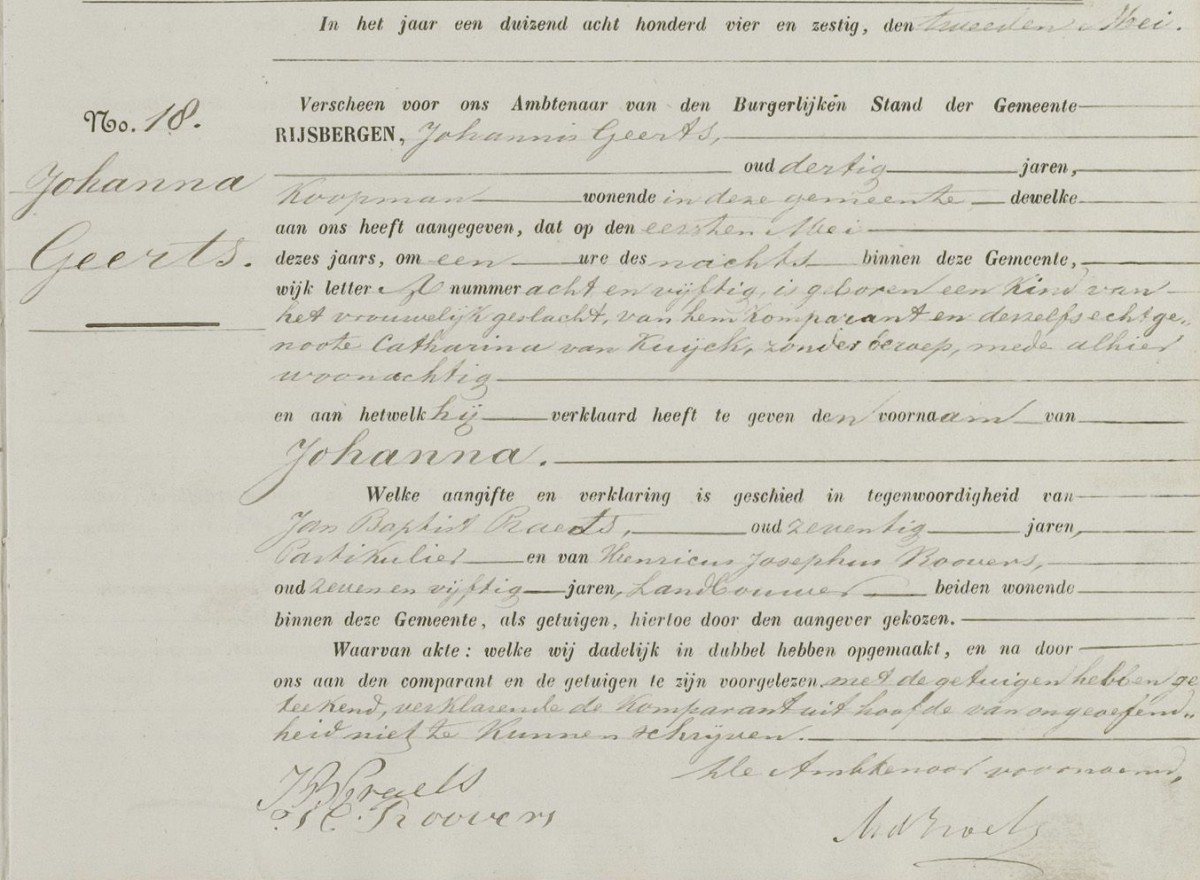 In het jaar een duizend acht honderd vier en zestig, den tweeden Mei.
No. 18.
Johanna
Geerts.
Verscheen voor ons Ambtenaar van den Burgerlijken Stand der Gemeente
RIJSBERGEN, Johannis Geerts,
oud dertig jaren,
Koopman wonende in deze gemeente dewelke
aan ons heeft aangegeven, dat op den eersten Mei
dezes jaars, om een ure des nachts binnen deze Gemeente,
wijk letter nummer acht en vijftig, is geboren een Kind van
het vrouwelijk geslacht, van hem Komparant en deszelfs echtge„
noote Catharina van Kuijck, zonder beroep, mede alhier
woonachtig
en aan hetwelk hij verklaard heeft te geven den voornaam van
Johanna.
Welke aangifte en verklaring is geschied in tegenwoordigheid van
Jan Baptist Praets, oud zeventig jaren,
Partikulier en van Henricus Josephus Roovers,
oud zeven en vijftig jaren, Landbouwer beiden wonende
binnen deze Gemeente, als getuigen, hiertoe door den aangever gekozen.
Waarvan akte: welke wij dadelijk in dubbel hebben opgemaakt, en na door
ons aan den comparant en de getuigen te zijn voorgelezen met de getuigen hebben ge
teekend, verklarende de Komparant uit hoofde van ongeoefend„
heid niet te Kunnen schrijven.
De Ambtenaar voornoemd,
Praets
Roovers